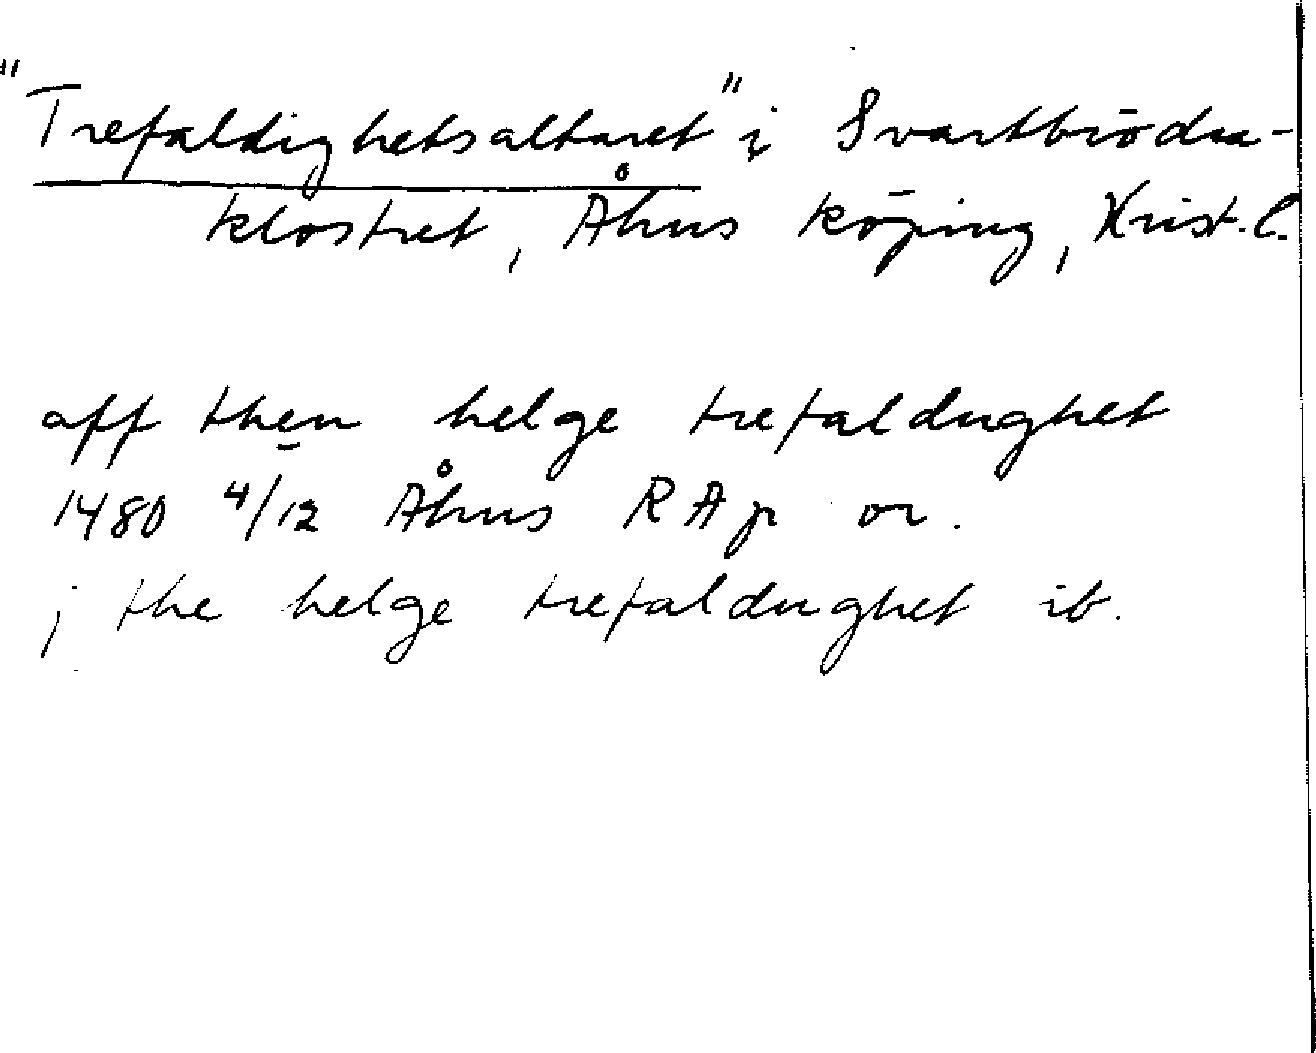 "Trefaldighetsaltaret" i Svartbrödra-
klostret, Åhus köping, Krist. l.
aff then helge trefaldughet
1480 4/12 Åhus RAp or.
j the helge trefaldughet ib.